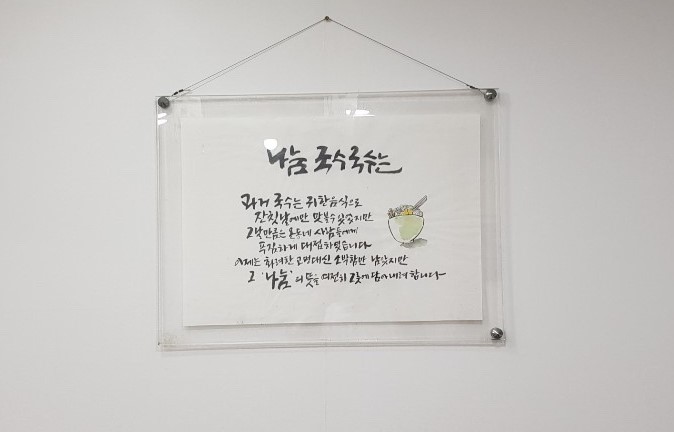 나눔 국수국수는
과거 국수는 귀한음식으로
잔칫날에만 맛볼수있었지만
그날만큼은 온동네 사람들에게
푸짐하게 대접하였습니다
이제는 화려한 고명대신 소박함만 남았지만
그 '나눔'의 뜻을 여전히 그릇에 담아내려 합니다